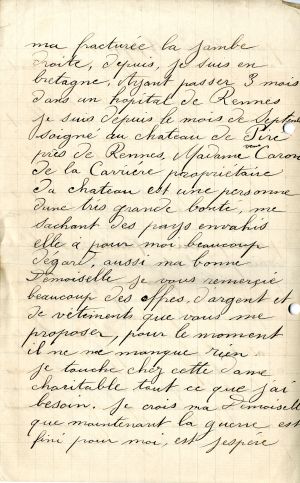 ma fracturée la jambe
droite, depuis, je suis en
bretagne, Ayant passer 3 mois
dans un hopital de Rennes
je suis depuis le mois de Septembre
soigné au chateau de Piré
près de Rennes, Madame Caron
de la Carrière propriétaire
du chateau est une personne
d'une très grande bonté, me
sachant des pays envahis
elle à pour moi beaucoup
d'egard, aussi ma bonne
Demoiselle je vous remergie
beaucoup des offres, d'argent et
de vêtements que vous me
proposer, pour le moment
il ne me manque rien
je touche chez cette dame
charitable tout ce que j'ai
besoin. je crois ma Demoiselle
que maintenant la guerre est
fini pour moi, est j'espère